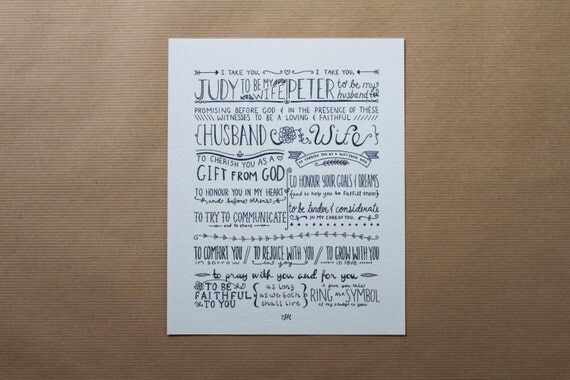 I TAKE YOU, I TAKE YOU,
JUDY TO BE MY WIFE PETER to be my husband
PROMISING BEFORE GOD & IN THE PRESENCE OF THESE
WITNESSES TO BE A LOVING & FAITHFUL
HUSBAND Wife
TO CHERISH YOU AS A
GIFT FROM GOD
TO HONOUR YOU IN MY HEART
and before others
TO TRY TO COMMUNICATE
and to share
TO CHERISH YOU AS A GIFT FROM GOD
TO HONOUR YOUR GOALS & DREAMS
and to help you to fulfill them
to be tender & considerate
IN MY CARE OF YOU
TO COMFORT YOU // TO REJOICE WITH YOU // TO GROW WITH YOU
in sorrow in joy in love
to pray with you and for you
TO BE FAITHFUL TO YOU
as long as we both shall live
I give you this RING as a SYMBOL
of my pledge to you